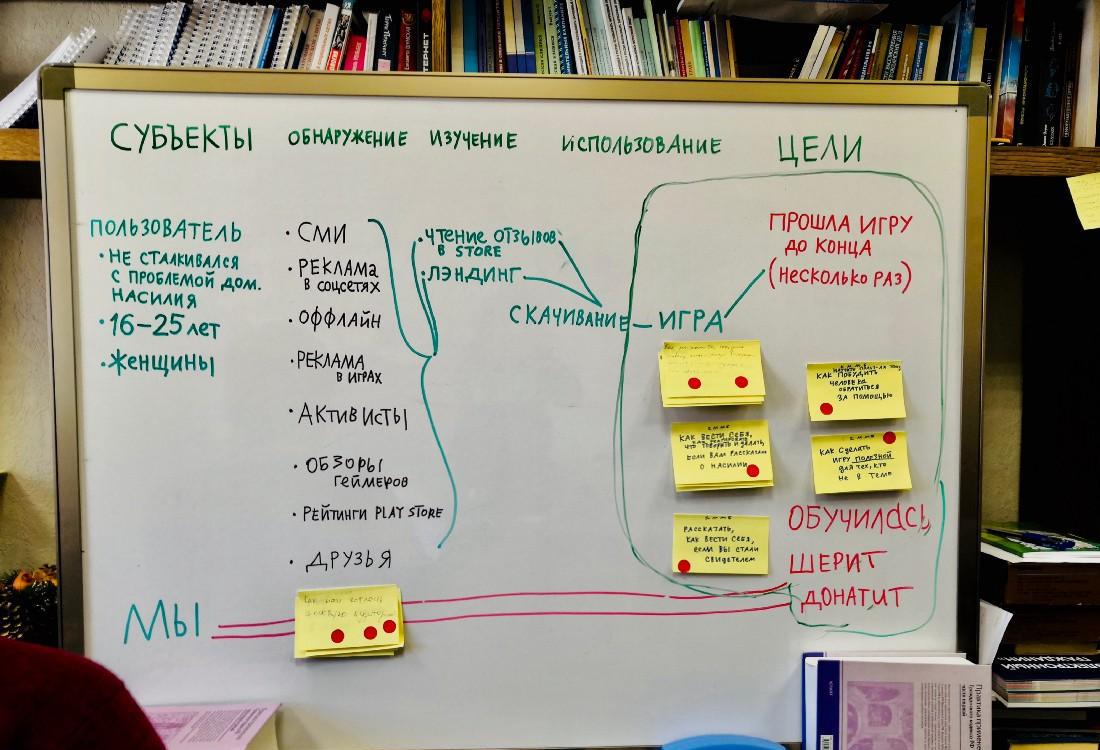 СУБЪЕКТЫ ОБНАРУЖЕНИЕ ИЗУЧЕНИЕ ИСПОЛЬЗОВАНИЕ ЦЕЛИ
ПОЛЬЗОВАТЕЛЬ
• НЕ СТАЛКИВАЛСЯ
С ПРОБЛЕМОЙ ДОМ.
НАСИЛИЯ
• 16-25 лет
• ЖЕНЩИНЫ
• СМИ
• РЕКЛАМА
В СОЦСЕТЯХ
• ОФФЛАЙН
• РЕКЛАМА
В ИГРАХ
• АКТИВИСТЫ
• ОБЗОРЫ
ГЕЙМЕРОВ
• РЕЙТИНГИ PLAY STORE
• ДРУЗЬЯ
• ЧТЕНИЕ ОТЗЫВОВ
В STORE
• ЛЭНДИНГ
СКАЧИВАНИЕ
ИГРА
ПРОШЛА ИГРУ
ДО КОНЦА
(НЕСКОЛЬКО РАЗ)
КАК ПОБУДИТЬ
ЧЕЛОВЕКА
ОБРАТИТЬСЯ
ЗА ПОМОЩЬЮ
КАК ВЕСТИ СЕБЯ,
ЧТО ГОВОРИТЬ И ДЕЛАТЬ,
ЕСЛИ ВАМ РАССКАЗАЛИ
О НАСИЛИИ
КАК СДЕЛАТЬ
ИГРУ ПОЛЕЗНОЙ
ДЛЯ ТЕХ, КТО
НЕ В ТЕМЕ
РАССКАЗАТЬ,
КАК ВЕСТИ СЕБЯ,
ЕСЛИ ВЫ СТАЛИ
СВИДЕТЕЛЕМ
ОБУЧИЛАСЬ,
ШЕРИТ
ДОНАТИТ
МЫ